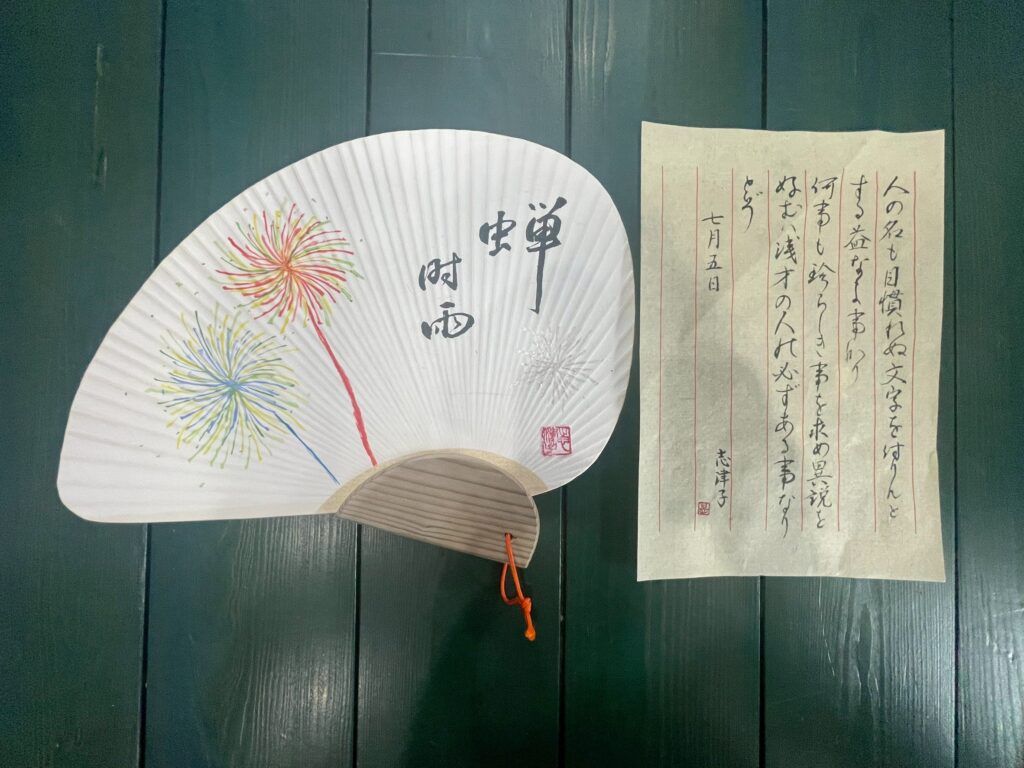 蝉
時雨
人の名も目慣れぬ文字をつかんと
する益なき事なり
何事も珍らしき事を求め異説を
好むは浅才の人の必ずある事なり
とぞ
七月五日
志津子